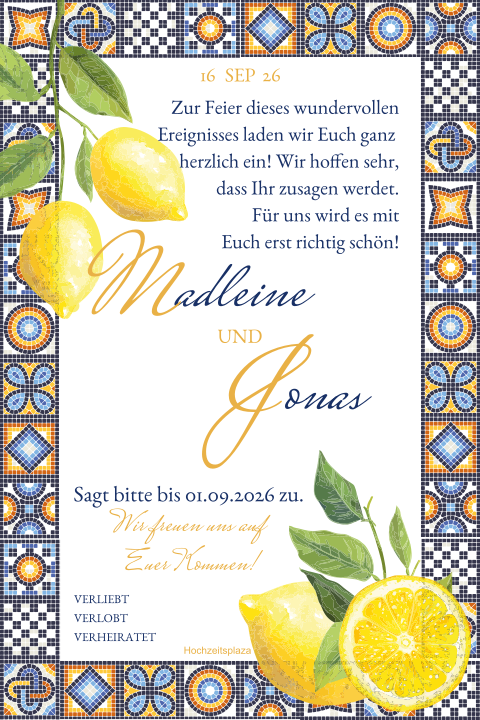 16 SEP 26
Zur Feier dieses wundervollen
Ereignisses laden wir Euch ganz
herzlich ein! Wir hoffen sehr,
dass Ihr zusagen werdet.
Für uns wird es mit
Euch erst richtig schön!
Madleine
UND
Jonas
Sagt bitte bis 01.09.2026 zu.
Wir freuen uns auf
Euer Kommen!
VERLIEBT
VERLOBT
VERHEIRATET
Hochzeitsplaza